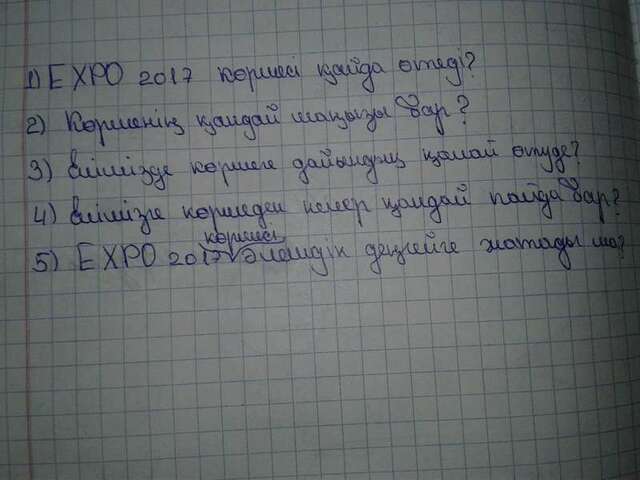 1) EXPO 2017 көрмесі қайда өтеді?
2) Көрменің қандай маңызы бар?
3) Елімізде көрмеге дайындық қалай өтуде?
4) Елімізге көрмеден келер қандай пайда бар?
көрмесі
5) EXPO 2017 Әлемдік деңгейге жатады ма?